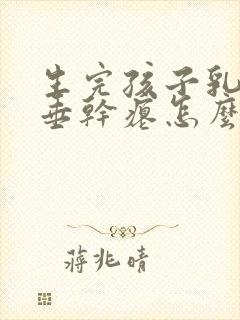 生完孩子乳
垂幹癟怎麼
蔣兆晴